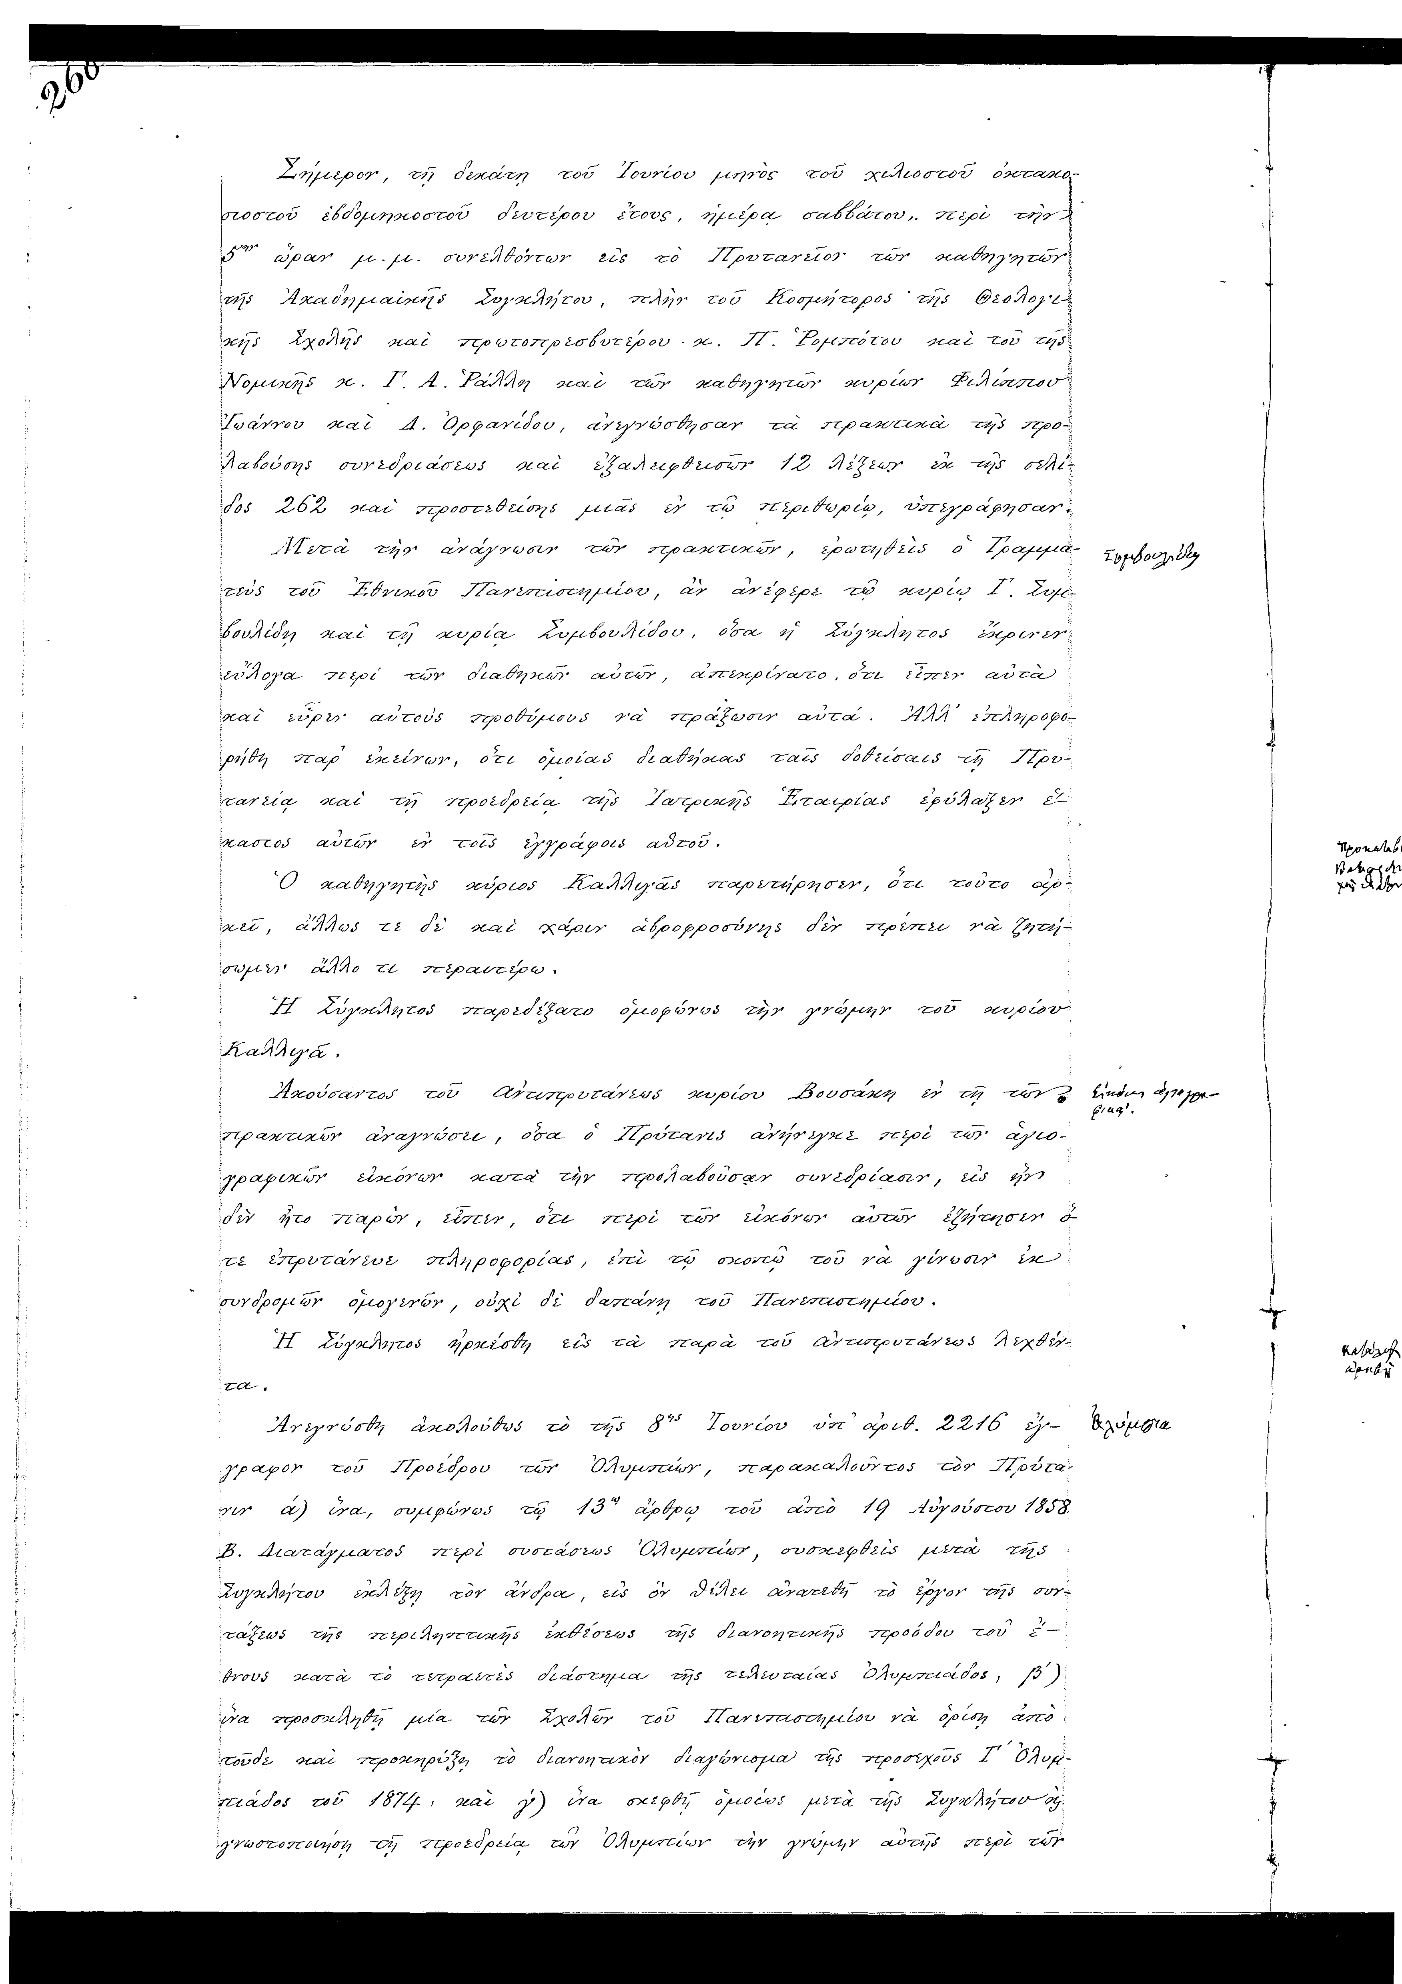 266
Σήμερον, τῇ δεκάτῃ τοῦ Ἰουνίου μηνὸς τοῦ χιλιοστοῦ ὀκτακο-
σιοστοῦ ἑβδομηκοστοῦ δευτέρου ἔτους, ἡμέρᾳ σαββάτου, περὶ τὴν
5ην ὥραν μ.μ. συνελθόντων εἰς τὸ Πρυτανεῖον τῶν καθηγητῶν
τῆς Ἀκαδημαϊκῆς Συγκλήτου, πλὴν τοῦ Κοσμήτορος τῆς Θεολογι-
κῆς Σχολῆς καὶ πρωτοπρεσβυτέρου κ. Π. Ῥομπότου καὶ τοῦ τῆς
Νομικῆς κ. Γ. Α. Ῥάλλη καὶ τῶν καθηγητῶν κυρίων Φιλίππου
Ἰωάννου καὶ Δ. Ὀρφανίδου, ἀνεγνώσθησαν τὰ πρακτικὰ τῆς προ-
λαβούσης συνεδριάσεως καὶ ἐξαλειφθεισῶν 12 λέξεων ἐκ τῆς σελί-
δος 262 καὶ προστεθείσης μιᾶς ἐν τῷ περιθωρίῳ, ὑπεγράφησαν.
Μετὰ τὴν ἀνάγνωσιν τῶν πρακτικῶν, ἐρωτηθεὶς ὁ Γραμμα-
τεὺς τοῦ Ἐθνικοῦ Πανεπιστημίου, ἂν ἀνέφερε τῷ κυρίῳ Γ. Συμ-
βουλίδῃ καὶ τῇ κυρίᾳ Συμβουλίδου, ὅσα ἡ Σύγκλητος ἔκρινεν
εὔλογα περὶ τῶν διαθηκῶν αὐτῶν, ἀπεκρίνατο, ὅτι εἶπεν αὐτὰ
καὶ εὗρεν αὐτοὺς προθύμους νὰ πράξωσιν αὐτά. Ἀλλ' ἐπληροφο-
ρήθη παρ' ἐκείνων, ὅτι ὁμοίας διαθήκας ταῖς δοθείσαις τῇ Πρυ-
τανείᾳ καὶ τῇ προεδρείᾳ τῆς Ἰατρικῆς Ἑταιρίας ἐφύλαξεν ἕ-
καστος αὐτῶν ἐν τοῖς ἐγγράφοις αὑτοῦ.
Ὁ καθηγητὴς κύριος Καλλιγᾶς παρετήρησεν, ὅτι τοῦτο ἀρ-
κεῖ, ἄλλως τε δὲ καὶ χάριν ἁβροφροσύνης δὲν πρέπει νὰ ζητή-
σωμεν ἄλλο τι περαιτέρω.
Ἡ Σύγκλητος παρεδέξατο ὁμοφώνως τὴν γνώμην τοῦ κυρίου
Καλλιγᾶ.
Ἀκούσαντος τοῦ ἀντιπρυτάνεως κυρίου Βουσάκη ἐν τῇ τῶν
πρακτικῶν ἀναγνώσει, ὅσα ὁ Πρύτανις ἀνήνεγκε περὶ τῶν ἁγιο-
γραφικῶν εἰκόνων κατὰ τὴν προλαβοῦσαν συνεδρίασιν, εἰς ἣν
δὲν ἦτο παρὼν, εἶπεν, ὅτι περὶ τῶν εἰκόνων αὐτῶν ἐζήτησεν ὅ-
τε ἐπρυτάνευε πληροφορίας, ἐπὶ τῷ σκοπῷ τοῦ νὰ γίνωσιν ἐκ
συνδρομῶν ὁμογενῶν, οὐχὶ δὲ δαπάνῃ τοῦ Πανεπιστημίου.
Ἡ Σύγκλητος ἠρκέσθη εἰς τὰ παρὰ τοῦ ἀντιπρυτάνεως λεχθέν-
τα.
Ἀνεγνώσθη ἀκολούθως τὸ τῆς 8ης Ἰουνίου ὑπ' ἀριθ. 2216 ἔγ-
γραφον τοῦ Προέδρου τῶν Ὀλυμπίων, παρακαλοῦντος τὸν Πρύτα-
νιν ά) ἵνα, συμφώνως τῷ 13ῳ ἄρθρῳ τοῦ ἀπὸ 19 Αὐγούστου 1858
Β. Διατάγματος περὶ συστάσεως Ὀλυμπίων, συσκεφθεὶς μετὰ τῆς
Συγκλήτου ἐκλέξῃ τὸν ἄνδρα, εἰς ὃν θέλει ἀνατεθῆ τὸ ἔργον τῆς συν-
τάξεως τῆς περιληπτικῆς ἐκθέσεως τῆς διανοητικῆς προόδου τοῦ ἔ-
θνους κατὰ τὸ τετραετὲς διάστημα τῆς τελευταίας Ὀλυμπιάδος, β')
ἵνα προσκληθῇ μία τῶν Σχολῶν τοῦ Πανεπιστημίου νὰ ὁρίσῃ ἀπὸ
τοῦδε καὶ προκηρύξῃ τὸ διανοητικὸν διαγώνισμα τῆς προσεχοῦς Γ' Ὀλυμ-
πιάδος τοῦ 1874, καὶ γ') ἵνα σκεφθῇ ὁμοίως μετὰ τῆς Συγκλήτου καὶ
γνωστοποιήσῃ τῇ προεδρείᾳ τῶν Ὀλυμπίων τὴν γνώμην αὐτῆς περὶ τῶν
Συμβουλίδη
Εἰκόνες ἁγιογρα-
φικαί.
Ὀλύμπια